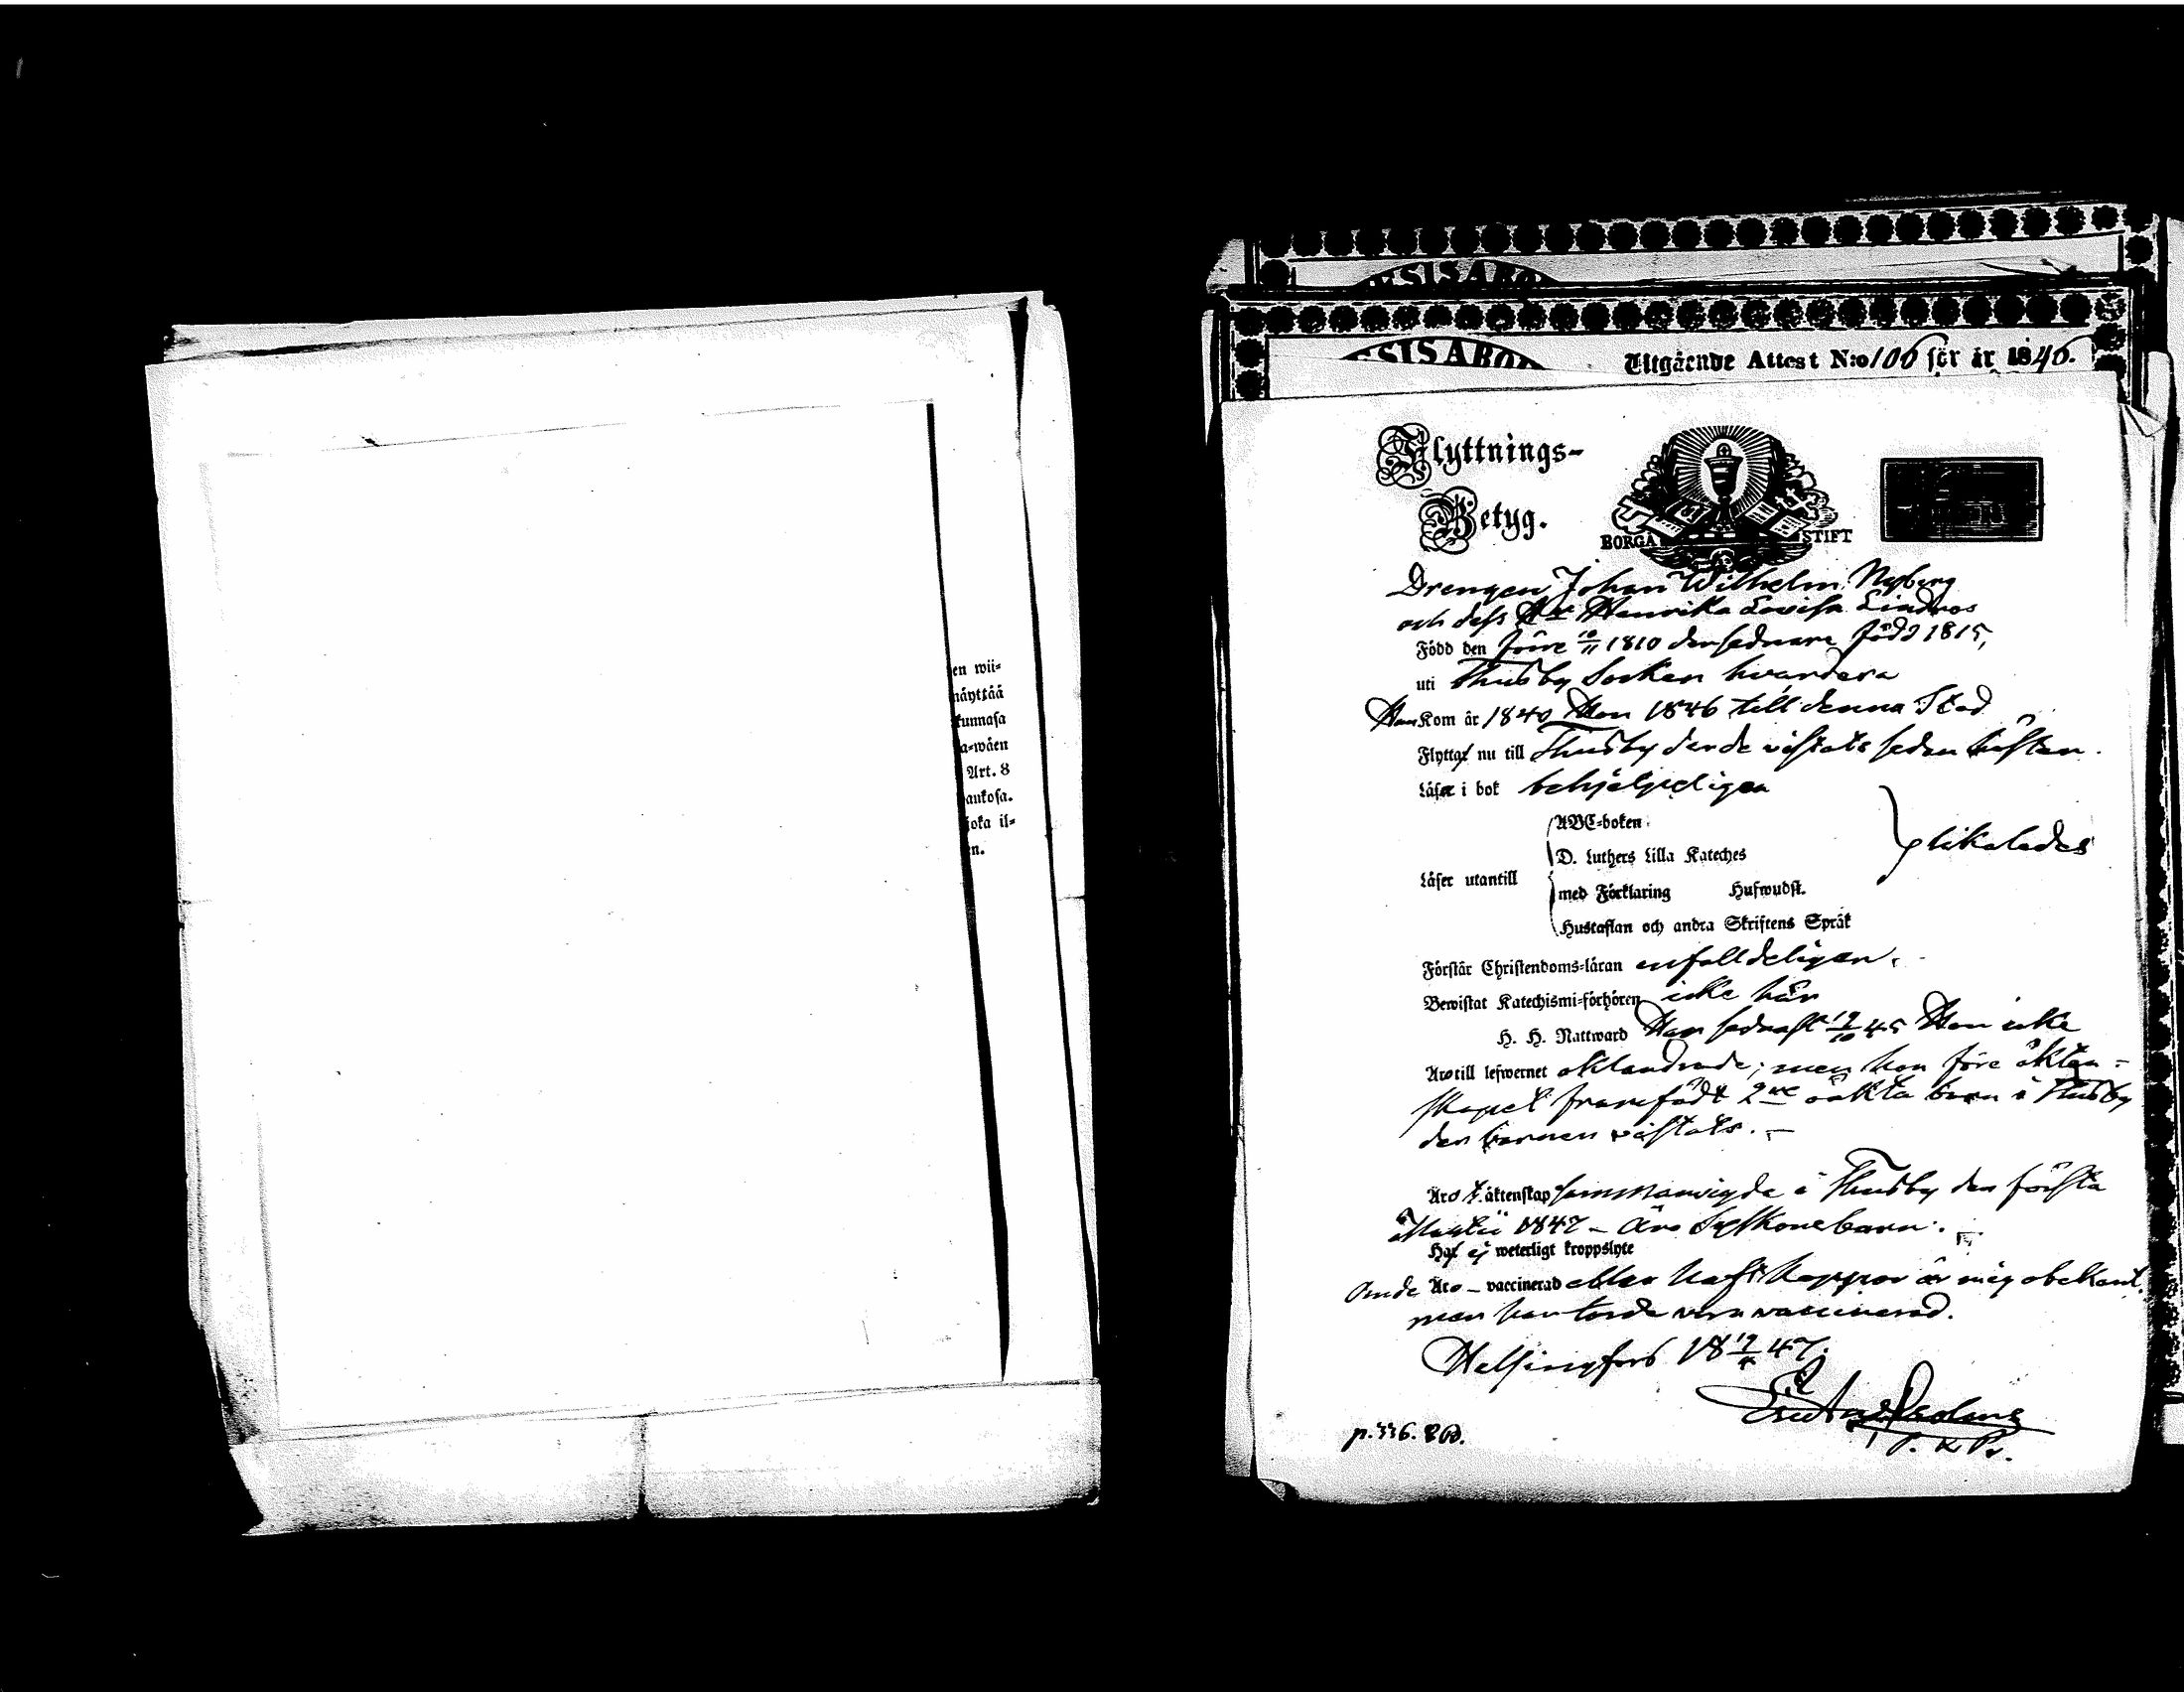 en wii=
näyttää
kunnasa
a=wäen
Art. 8
aukosa.
joka il=
en.
ESIS ABO
ESIS ABO
Utgående Attest N:o 106 för år 1846.
Flyttnings-
Betyg.
BORGÅ STIFT
Drengen Johan Wilhelm Nyberg
och dess Henrika Lovisa Lindros
Född den förre 10/11 1810 den sednare född 1815,
uti Thusby Socken hvardera
Han Kom år 1840 Hon 1846 till denna Stad
Flyttar nu till Thusby der de vistats sedan hösten.
Läser i bok behjelpeligen
ABC=boken
D. Luthers Lilla Kateches
likaledes
Läser utantill
med Förklaring Hufwudst.
Hustaflan och andra Skriftens Språk
Förstår Christendoms=läran enfalldeligen.
Bewistat Katechismi=förhören icke här
H. H. Nattward Han sednast 19/10 45 Hon icke
Äro till lefwernet oklandrade; men hon före äkten=
skapet framfödt 2ne oäkta barn i Thusby
der barnen vistats. —
Äro t. äktenskap sammanvigde i Thusby den första
Martii 1847 — äro Syskonebarn.
Haf ej weterligt kroppslyte
Om de Äro — vaccinerad eller haft koppor är mig obekant,
men han torde vara vaccinerad.
Helsingfors 18 19/4 47.
p. 336.